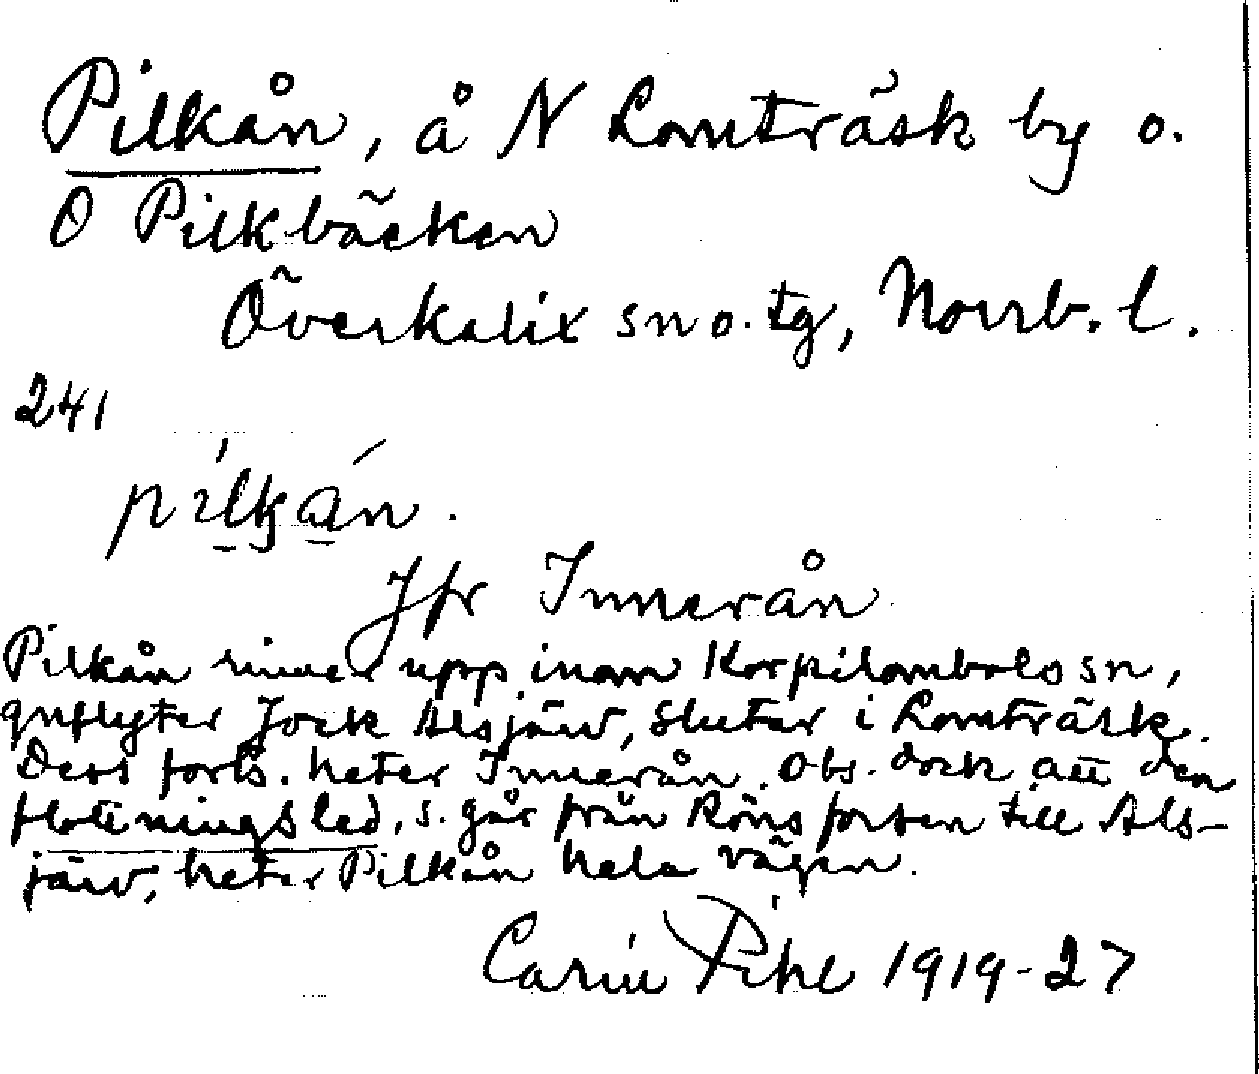 Pilkån, å N Lomträsk by o.
O Pilkbäcken
Överkalix sn o. tg, Norrb. l.
241
pilkån.
Jfr Innerån
Pilkån rinner upp inom Korpilombolo sn,
gnflyter Jock Alsjärv, slutar i Lomträsk.
Dess forts. heter Innerån. Obs. dock att den
flottningsled, s. går från Röns forsen till Als-
järv, heter Pilkån hela vägen.
Carin Pihl 1919-27